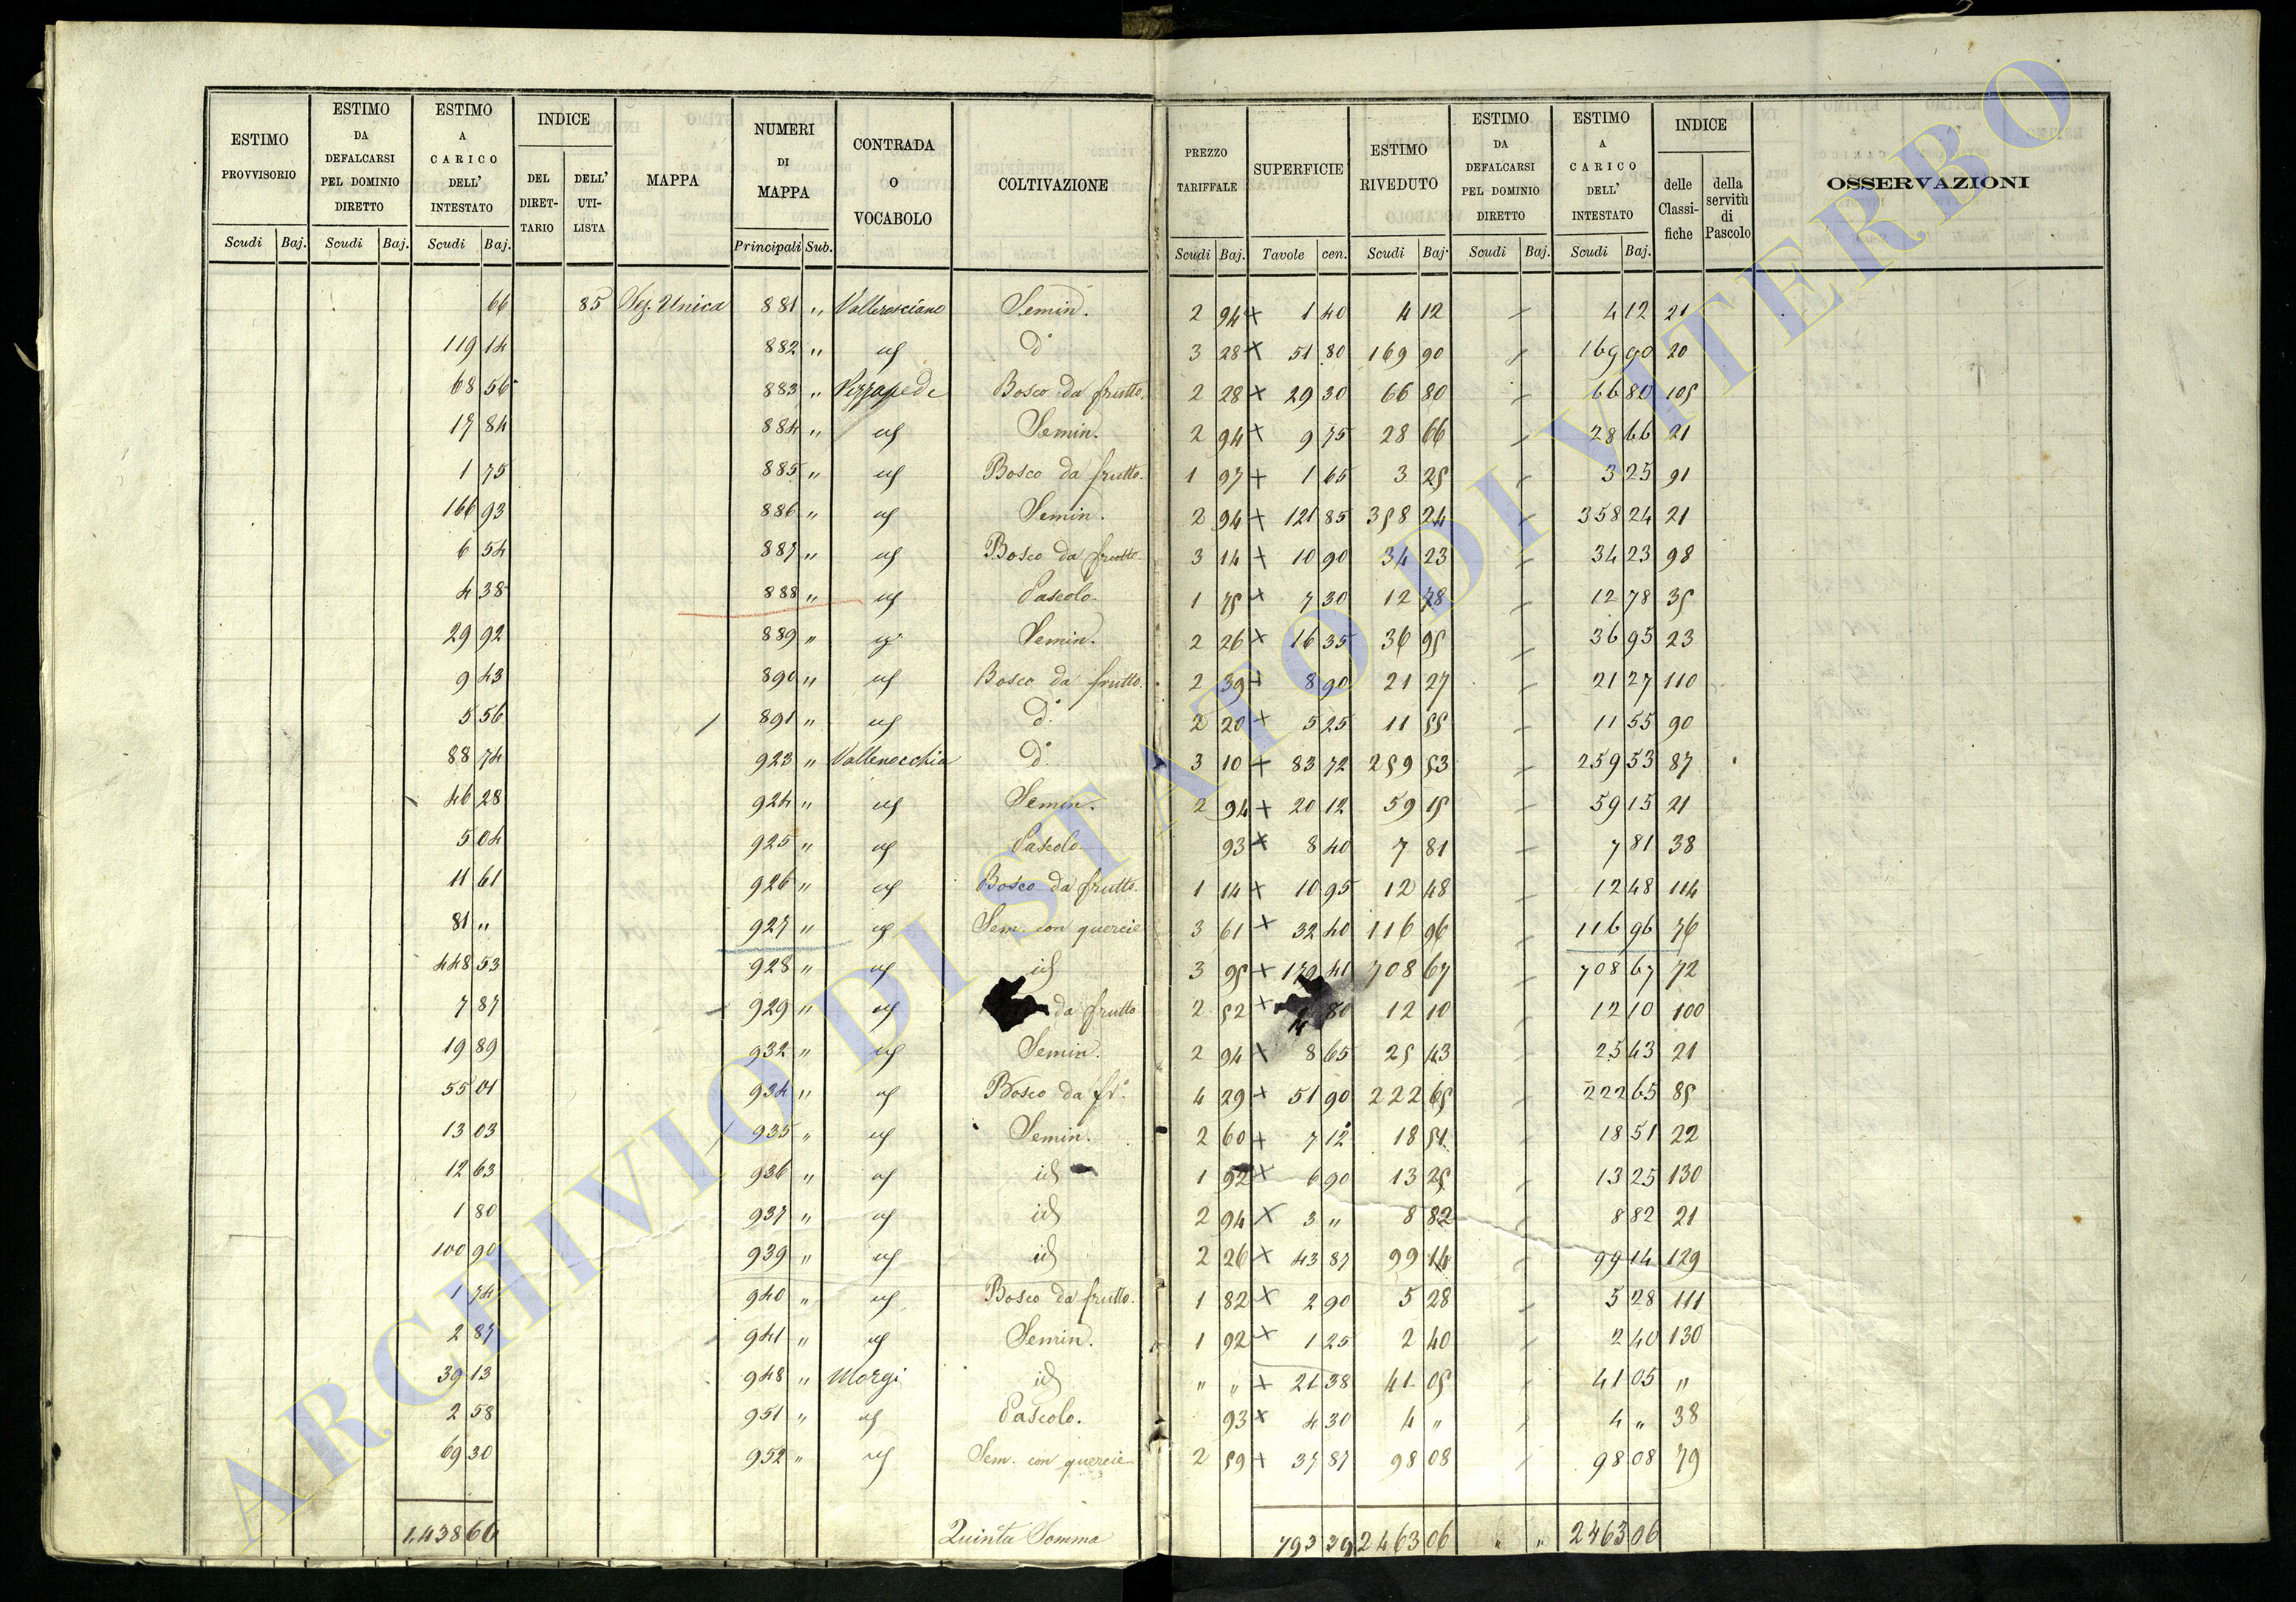 ESTIMO PROVVISORIO | ESTIMO DA DEFALCARSI PEL DOMINIO DIRETTO | ESTIMO A CARICO DELL' INTESTATO | INDICE | MAPPA | NUMERI DI MAPPA | CONTRADA O VOCABOLO | COLTIVAZIONE | PREZZO TARIFFALE | SUPERFICIE | ESTIMO RIVEDUTO | ESTIMO DA DEFALCARSI PEL DOMINIO DIRETTO | ESTIMO A CARICO DELL' INTESTATO | INDICE | OSSERVAZIONI
DEL DIRET-TARIO | DELL' UTI-LISTA | delle Classi-fiche | della servitù di Pascolo
Scudi | Baj. | Scudi | Baj. | Scudi | Baj. | Principali | Sub. | Scudi | Baj. | Tavole | cen. | Scudi | Baj. | Scudi | Baj. | Scudi | Baj.
66 | 85 | Sez. Unica | 881 | " | Vallerosciano | Semin. | 2 94 + | 1 40 | 4 12 | 4 12 | 21
119 14 | 882 | " | id | d° | 3 28 × | 51 80 | 169 90 | 169 90 | 20
68 56 | 883 | " | Pizzapede | Bosco da frutto. | 2 28 × | 29 30 | 66 80 | 66 80 | 105
17 84 | 884 | " | id | Semin. | 2 94 + | 9 75 | 28 66 | 28 66 | 21
1 75 | 885 | " | id | Bosco da frutto. | 1 97 + | 1 65 | 3 25 | 3 25 | 91
166 93 | 886 | " | id | Semin. | 2 94 + | 121 85 | 358 24 | 358 24 | 21
6 54 | 887 | " | id | Bosco da frutto. | 3 14 + | 10 90 | 34 23 | 34 23 | 98
4 38 | 888 | " | id | Pascolo. | 1 75 + | 7 30 | 12 78 | 12 78 | 35
29 92 | 889 | " | id | Semin. | 2 26 × | 16 35 | 36 95 | 36 95 | 23
9 43 | 890 | " | id | Bosco da frutto. | 2 39 + | 8 90 | 21 27 | 21 27 | 110
5 56 | 891 | " | id | d° | 2 20 + | 5 25 | 11 55 | 11 55 | 90
88 74 | 923 | " | Vallenocchia | d° | 3 10 + | 83 72 | 259 53 | 259 53 | 87
46 28 | 924 | " | id | Semin. | 2 94 + | 20 12 | 59 15 | 59 15 | 21
5 04 | 925 | " | id | Pascolo. | 93 × | 8 40 | 7 81 | 7 81 | 38
11 61 | 926 | " | id | Bosco da frutto. | 1 14 + | 10 95 | 12 48 | 12 48 | 114
81 " | 927 | " | id | Sem. con quercie | 3 61 + | 32 40 | 116 96 | 116 96 | 76
448 53 | 928 | " | id | id | 3 95 + | 179 41 | 708 67 | 708 67 | 72
7 87 | 929 | " | id | da frutto | 2 52 + | 80 | 12 10 | 12 10 | 100
19 89 | 932 | " | id | Semin. | 2 94 × | 8 65 | 25 43 | 25 43 | 21
55 01 | 934 | " | id | Bosco da fr° | 4 29 + | 51 90 | 222 65 | 222 65 | 85
13 03 | 935 | " | id | Semin. | 2 60 + | 7 12 | 18 51 | 18 51 | 22
12 63 | 936 | " | id | id | 1 92 × | 6 90 | 13 25 | 13 25 | 130
1 80 | 937 | " | id | id | 2 94 × | 3 " | 8 82 | 8 82 | 21
100 90 | 939 | " | id | id | 2 26 × | 43 87 | 99 14 | 99 14 | 129
1 74 | 940 | " | id | Bosco da frutto. | 1 82 × | 2 90 | 5 28 | 5 28 | 111
2 87 | 941 | " | id | Semin. | 1 92 × | 1 25 | 2 40 | 2 40 | 130
39 13 | 948 | " | Morgi | id | " " + | 21 38 | 41 05 | 41 05 | "
2 58 | 951 | " | id | Pascolo. | 93 × | 4 30 | 4 " | 4 " | 38
69 30 | 952 | " | id | Sem. con quercie | 2 59 + | 37 87 | 98 08 | 98 08 | 79
1438 66 | Quinta Somma | 793 39 | 2463 06 | " " | 2463 06
ARCHIVIO DI STATO DI VITERBO